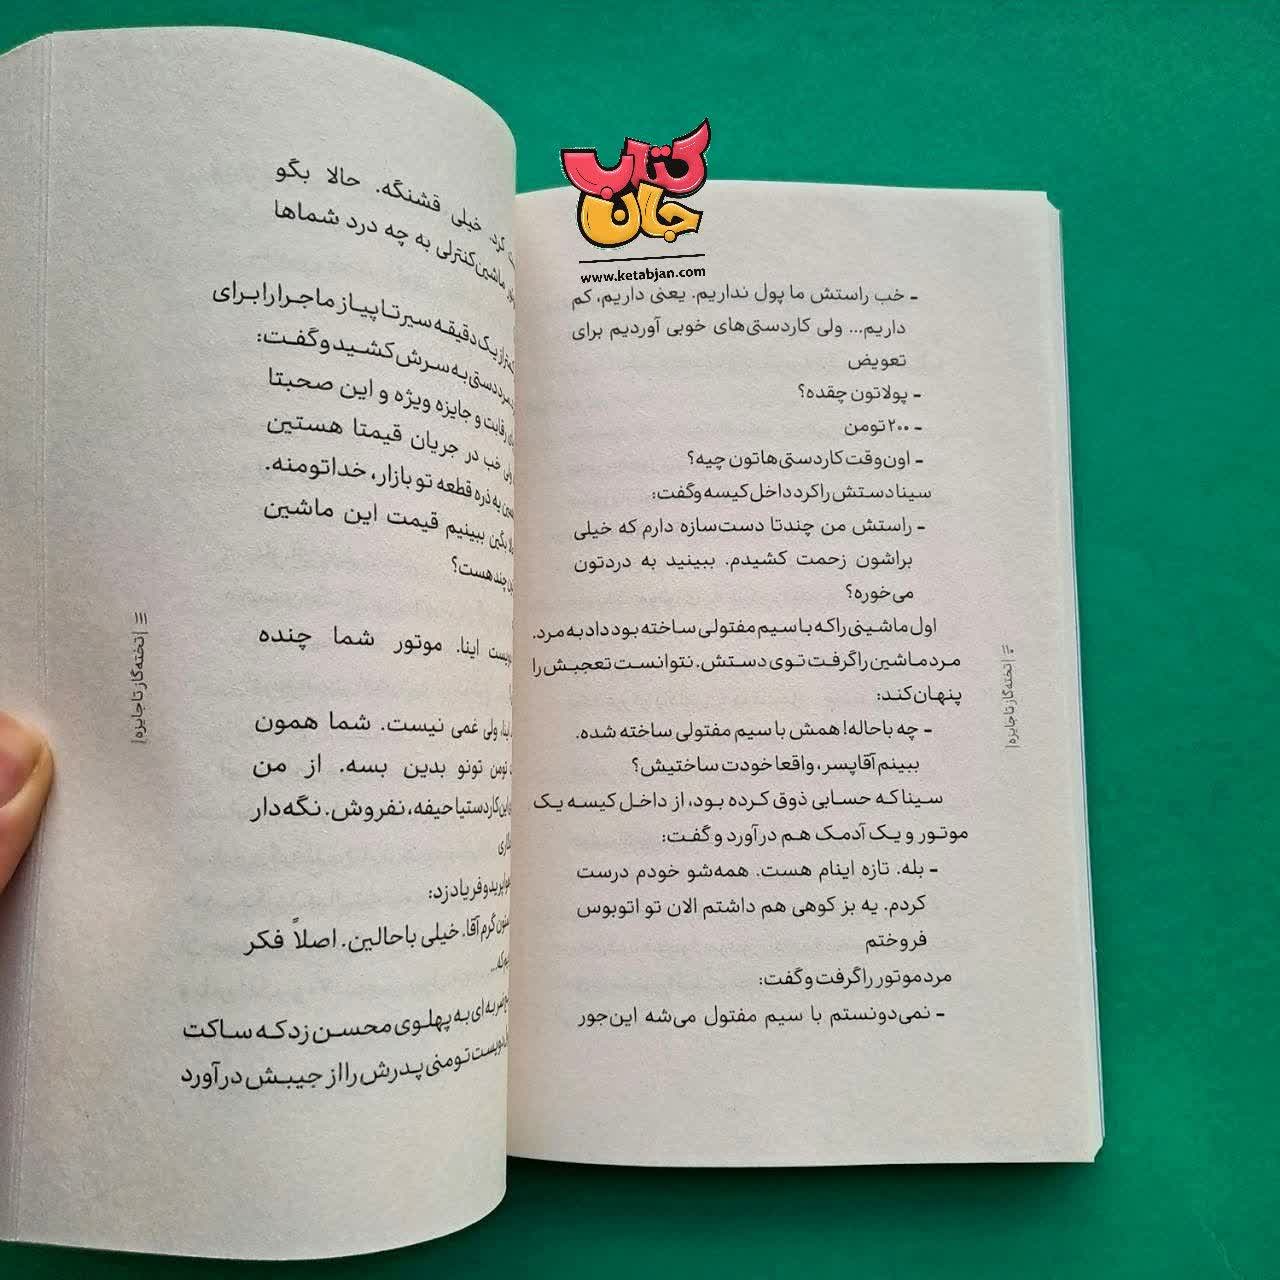 کتاب
جان
www.ketabjan.com
- خب راستش ما پول نداریم. یعنی داریم، کم
داریم... ولی کاردستی‌های خوبی آوردیم برای
تعویض
- پولاتون چقده؟
- ۲۰۰ تومن
- اون‌وقت کاردستی‌هاتون چیه؟
سینا دستش را کرد داخل کیسه و گفت:
- راستش من چندتا دست‌سازه دارم که خیلی
براشون زحمت کشیدم. ببینید به دردتون
می‌خوره؟
اول ماشینی را که با سیم مفتولی ساخته بود داد به مرد.
مرد ماشین را گرفت توی دستش. نتوانست تعجبش را
پنهان کند:
- چه باحاله! همش با سیم مفتولی ساخته شده.
ببینم آقاپسر، واقعا خودت ساختیش؟
سینا که حسابی ذوق کرده بود، از داخل کیسه یک
موتور و یک آدمک هم درآورد و گفت:
- بله. تازه اینام هست. همه‌شو خودم درست
کردم. یه بز کوهی هم داشتم الان تو اتوبوس
فروختم
مرد موتور را گرفت و گفت:
- نمی‌دونستم با سیم مفتول می‌شه این‌جور
| تخته‌گاز تا جایزه |
کرد. خیلی قشنگه. حالا بگو
ماشین‌کنترلی به چه درد شماها
یک دقیقه سیر تا پیاز ماجرا را برای
مرد دستی به سرش کشید و گفت:
رقابت و جایزه ویژه و این صحبتا
ولی خب در جریان قیمتا هستین
یه ذره قطعه تو بازار، خداتومنه.
بگین ببینیم قیمت این ماشین
چند هست؟
اینا. موتور شما چنده
ولی غمی نیست. شما همون
تومن تونو بدین بسه. از من
این کاردستیا حیفه، نفروش. نگه‌دار
پرید و فریاد زد:
گرم آقا. خیلی باحالین. اصلاً فکر
ضربه‌ای به پهلوی محسن زد که ساکت
تومنی پدرش را از جیبش درآورد
| تخته‌گاز تا جایزه |